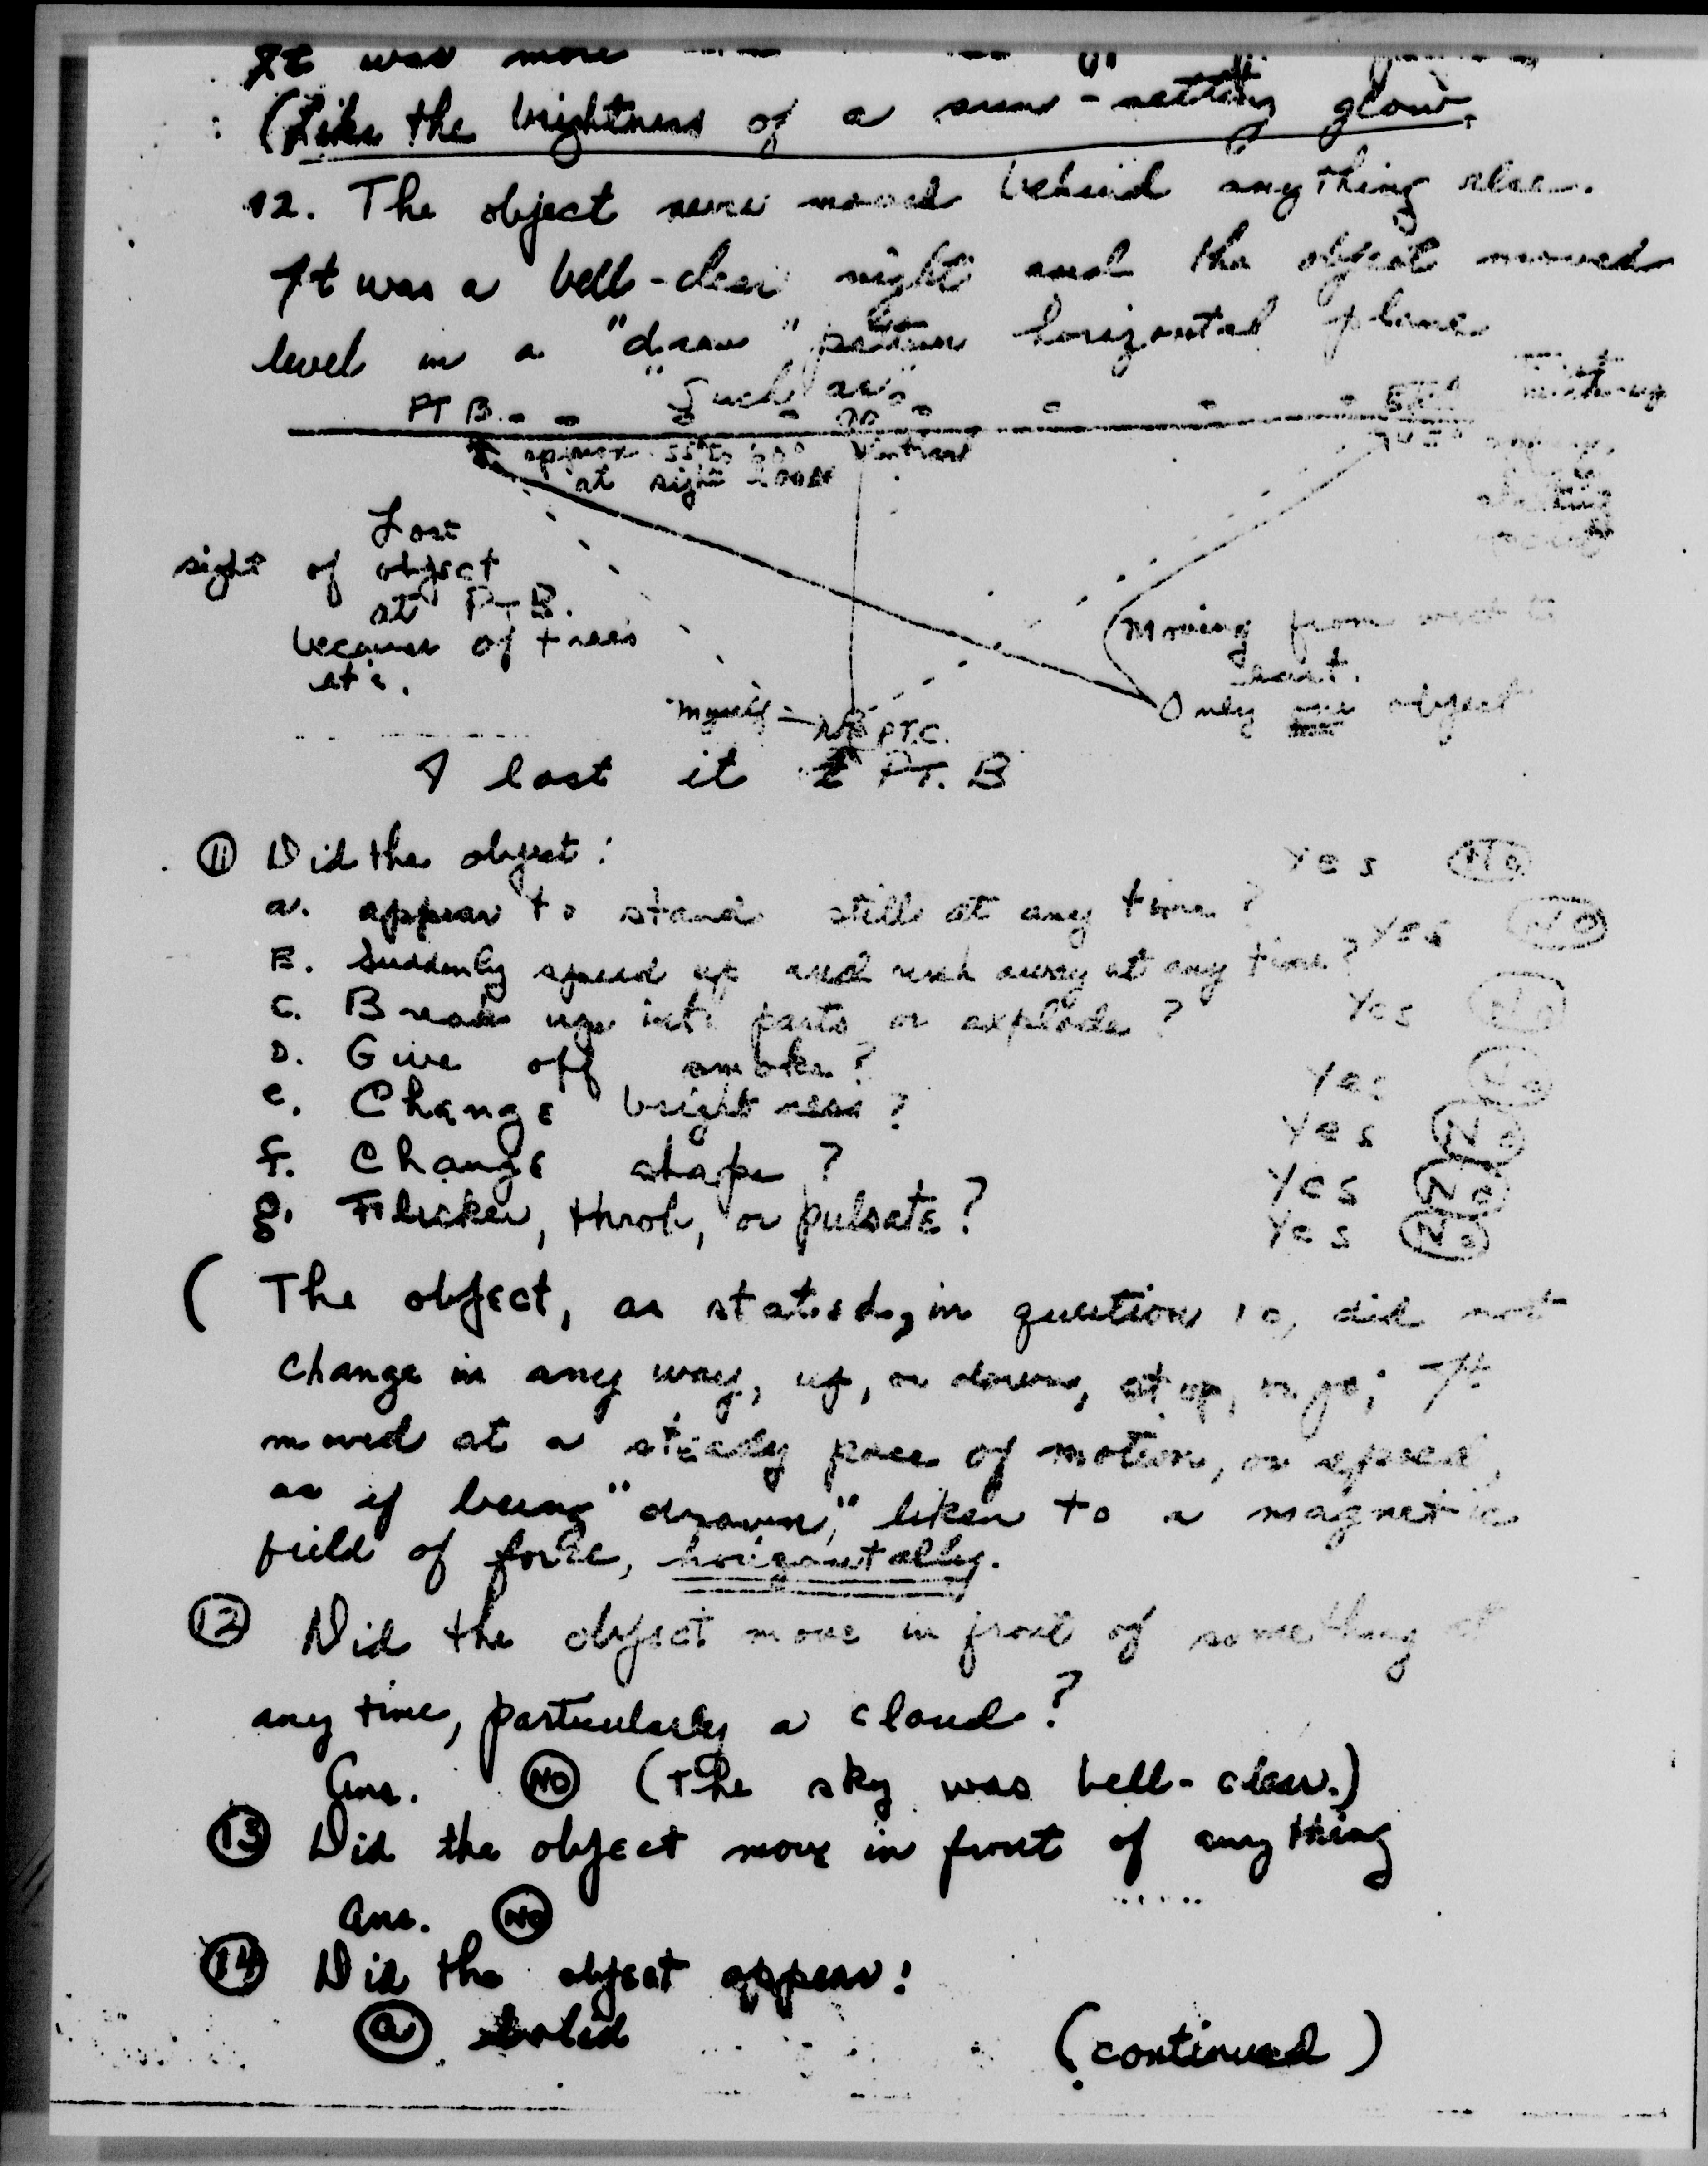 It was more
(Like the brightness of a sun-setting glow.
12. The object never moved behind anything else.
It was a bell-clear night and the object moved
level in a "draw" pattern horizontal plane
"Such as"
PT B.
approx. 55° to 60°
at sight
Lost
sight of object
at PT B.
because of trees
etc.
(Moving from west to
east.
Only one object
myself - PT.C.
I lost it PT. B
11 Did the object:
a. appear to stand still at any time? Yes No
B. Suddenly speed up and rush away at any time? Yes No
C. Break up into parts or explode? Yes No
D. Give off smoke? Yes No
e. Change brightness? Yes No
f. Change shape? Yes No
g. Flicker, throb, or pulsate? Yes No
( The object, as stated, in question 10, did not
change in any way, up, or down, stop, or go; It
moved at a steady pace of motion, or speed,
as if being "drawn," liken to a magnetic
field of force, horizontally.
12 Did the object move in front of something at
any time, particularly a cloud?
Ans. NO (The sky was bell-clear.)
13 Did the object move in front of anything
Ans. NO
14 Did the object appear:
a Solid
(continued)